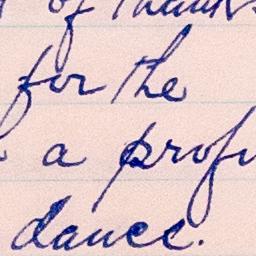 of thanks
for the
a profi
dance.